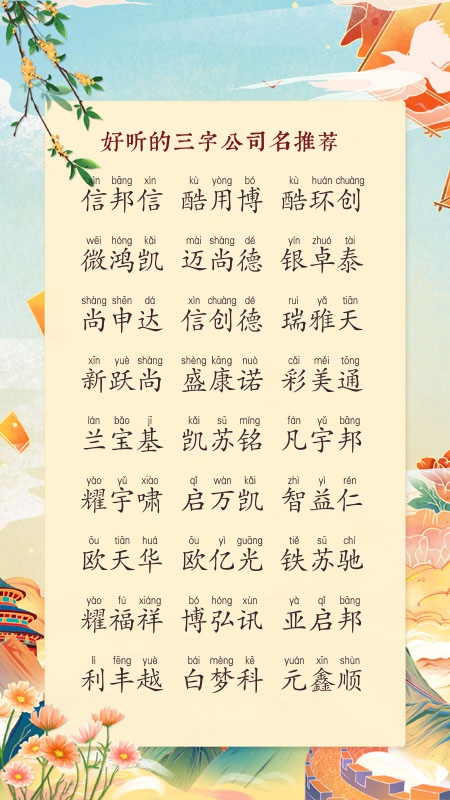 好听的三字公司名推荐
xìn bāng xìn kù yòng bó kù huán chuàng
信邦信 酷用博 酷环创
wēi hóng kǎi mài shàng dé yín zhuó tài
微鸿凯 迈尚德 银卓泰
shàng shēn dá xìn chuàng dé ruì yǎ tiān
尚申达 信创德 瑞雅天
xīn yuè shàng shèng kāng nuò cǎi měi tōng
新跃尚 盛康诺 彩美通
lán bǎo jī kǎi sū míng fán yǔ bāng
兰宝基 凯苏铭 凡宇邦
yào yǔ xiào qǐ wàn kǎi zhì yì rén
耀宇啸 启万凯 智益仁
ōu tiān huá ōu yì guāng tiě sū chí
欧天华 欧亿光 铁苏驰
yào fú xiáng bó hóng xùn yà qǐ bāng
耀福祥 博弘讯 亚启邦
lì fēng yuè bái mèng kē yuán xīn shùn
利丰越 白梦科 元鑫顺